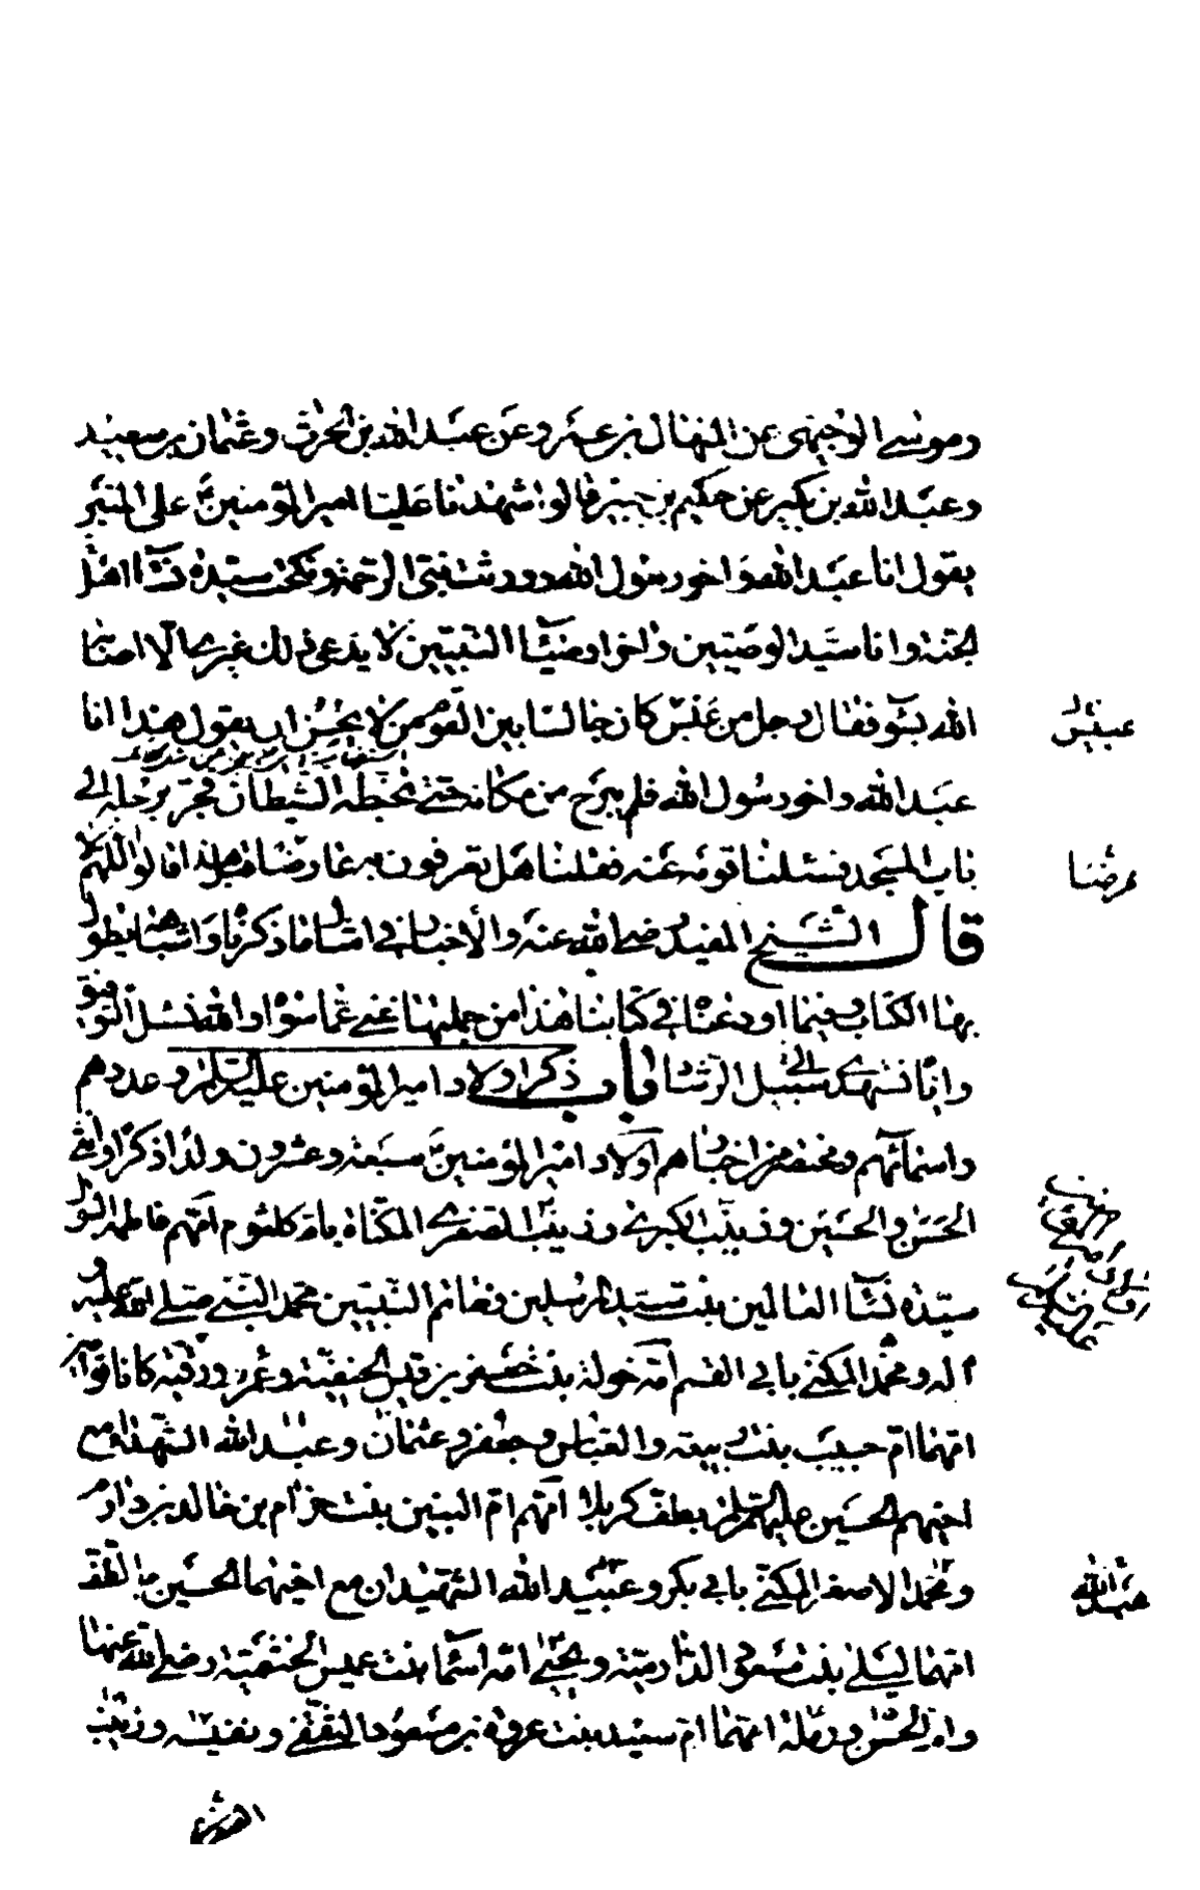 وموسى الوجيهى عن المنهال بن عمرو عن عبد الله بن الحرث وعثمان بن سعيد
وعبد الله بن بكير عن حكيم بن جبير قالوا شهدنا عليا امير المؤمنين على المنبر
يقول انا عبد الله واخو رسول الله وورثت نبى الرحمة ونكحت سيدة نساء اهل
الجنة وانا سيد الوصيين واخر اوصياء النبيين لا يدعى ذلك غيرى الا اصابه
الله بسوء فقال رجل من عبس كان جالسا بين القوم من لا يحسن ان يقول هذا انا
عبد الله واخو رسول الله فلم يبرح من مكانه حتى تخبطه الشيطان فجر برجله الى
باب المسجد فسئلنا قومه عنه فقلنا هل تعرفون به عارضا قبل هذا قالوا اللهم لا
قال الشيخ المفيد رضى الله عنه والأخبار فى امثال ما ذكرناه واشباهه يطول
بها الكتاب وفيما اودعناه فى كتابنا هذا من جملتها غنى عما سواه والله نسئل التوفيق
واياه نستهدى الى سبيل الرشاد باب ذكر اولاد امير المؤمنين عليه السلام وعددهم
واسمائهم ومختصر من اخبارهم اولاد امير المؤمنين سبعة وعشرون ولدا ذكرا وانثى
الحسن والحسين وزينب الكبرى وزينب الصغرى المكناة بام كلثوم امهم فاطمة البتول
سيدة نساء العالمين بنت سيد المرسلين وخاتم النبيين محمد النبى صلى الله عليه و
آله ومحمد المكنى بابى القسم امه خولة بنت جعفر بن قيس الحنفية وعمر ورقية كانا توأمين
امهما ام حبيب بنت ربيعه والعباس وجعفر وعثمان وعبد الله الشهداء مع
اخيهم الحسين عليهم السلم بطف كربلا امهم ام البنين بنت حزام بن خالد بن دارم
ومحمد الاصغر المكنى بابى بكر وعبيد الله الشهيدان مع اخيهما الحسين بالطف
امهما ليلى بنت مسعود الدارمية ويحيى امه اسماء بنت عميس الخثعمية رضى الله عنها
وام الحسن ورملة امهما ام سعيد بنت عروة بن مسعود الثقفى ونفيسه وزينب
عبد الله